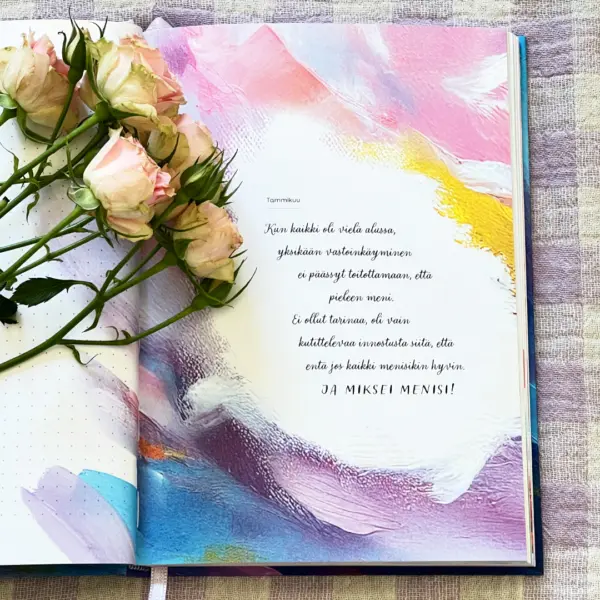 Tammikuu
Kun kaikki oli vielä alussa,
yksikään vastoinkäyminen
ei päässyt toitottamaan, että
pieleen meni.
Ei ollut tarinaa, oli vain
kutittelevaa innostusta siitä, että
entä jos kaikki menisikin hyvin.
JA MIKSEI MENISI!